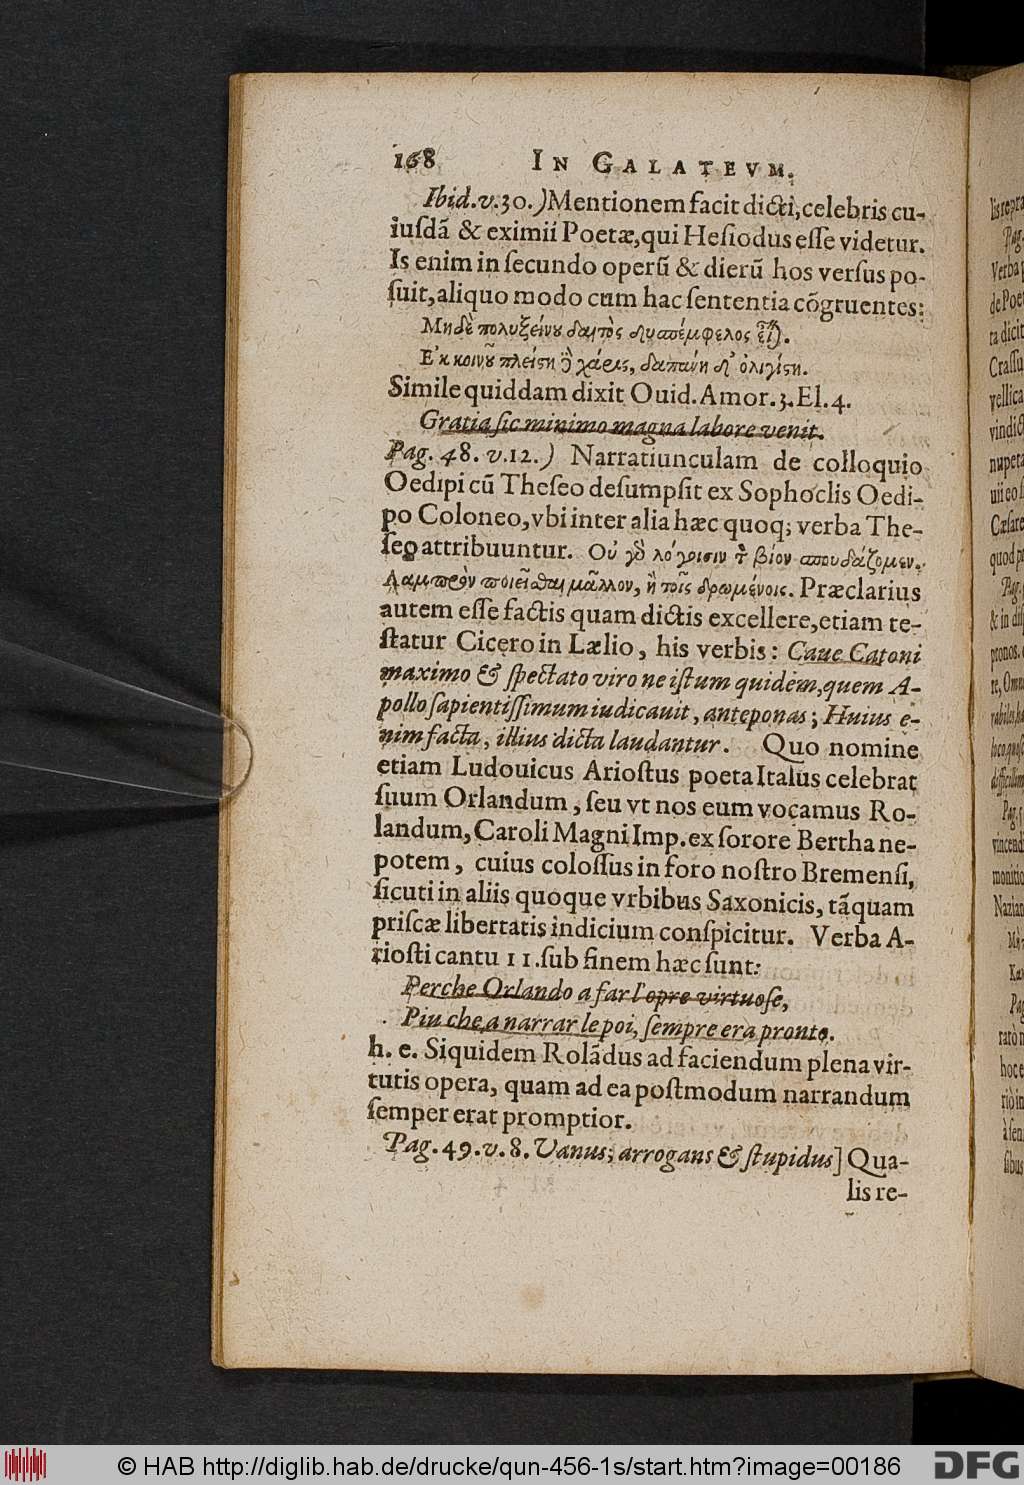 168 IN GALATEVM.
Ibid.v.30.) Mentionem facit dicti, celebris cu-
iusdã & eximii Poetæ, qui Hesiodus esse videtur.
Is enim in secundo operũ & dierũ hos versus po-
suit, aliquo modo cum hac sententia cõgruentes:
Μηδὲ πολυξείνου δαιτὸς δυσπέμφελος εἶ).
Ἐκ κοινοῦ πλείστη δὲ χάρις, δαπάνη δ' ὀλιγίστη.
Simile quiddam dixit Ouid. Amor. 3. El. 4.
Gratia sic minimo magna labore venit.
Pag. 48. v. 12.) Narratiunculam de colloquio
Oedipi cũ Theseo desumpsit ex Sophoclis Oedi-
po Coloneo, vbi inter alia hæc quoq; verba The-
seo attribuuntur. Οὐ γὸ λόγοισιν τ̀ βίον σπουδάζομεν.
Λαμπρὸν ποιεῖσθαι μᾶλλον, ἢ τοῖς δρωμένοις. Præclarius
autem esse factis quam dictis excellere, etiam te-
statur Cicero in Lælio, his verbis: Caue Catoni
maximo & spectato viro ne istum quidem, quem A-
pollo sapientissimum iudicauit, anteponas; Huius e-
nim facta, illius dicta laudantur. Quo nomine
etiam Ludouicus Ariostus poeta Italus celebrat
suum Orlandum, seu vt nos eum vocamus Ro-
landum, Caroli Magni Imp. ex sorore Bertha ne-
potem, cuius colossus in foro nostro Bremensi,
sicuti in aliis quoque vrbibus Saxonicis, tãquam
priscæ libertatis indicium conspicitur. Verba A-
riosti cantu 11. sub finem hæc sunt:
Perche Orlando a far l'opre virtuose,
Piu che a narrar le poi, sempre era pronto.
h. e. Siquidem Rolãdus ad faciendum plena vir-
tutis opera, quam ad ea postmodum narrandum
semper erat promptior.
Pag. 49. v. 8. Vanus, arrogans & stupidus] Qua-
lis re-
lis repra
Pag.
Verba
de Poet
ta dicit
Crassu
vellica
vindict
nupera
uii eo
Cæsare
quod
Pag.
& in
pronos.
re, Omn
Pag.
vincend
monitio
Nazian
Pag
rario
hoc e
rio in
à sen
sibus
© HAB http://diglib.hab.de/drucke/qun-456-1s/start.htm?image=00186
DFG